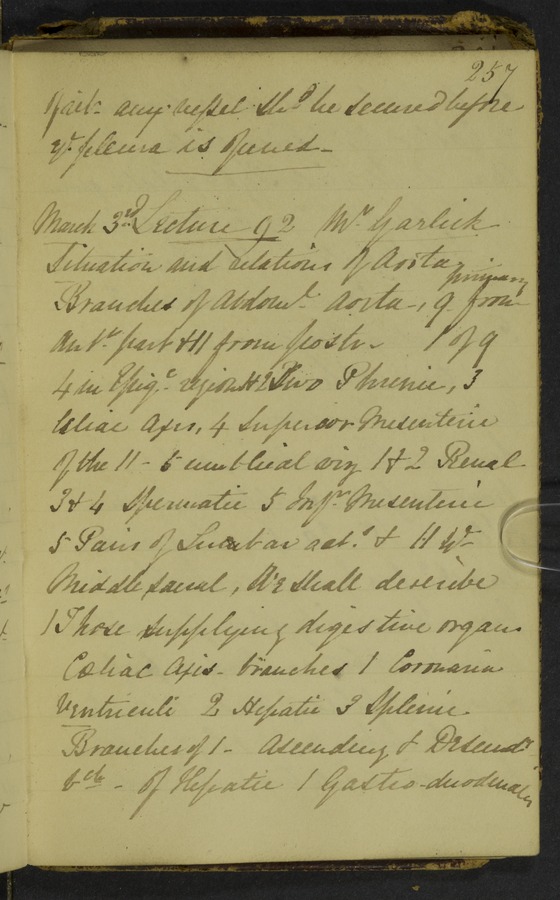 257
part any vessel shd be secured before
ye pleura is opened –
March 3rd Lecture 92 Mr Garlick
Situation and relations of Aorta
primary
Branches of Abdoml Aorta –, 9 from
antr part & 11 from postr – of 9
4 in Epigc region 1 & 2 Two Phrenic, 3
Cœliac Axis, 4 Superior Mesenteric
of the 11 – 5 umblical viz 1 & 2 Renal
3 & 4 Spermatic 5 Infr Mesenteric
5 Pairs of Lumbar art.s & 11th
Middle sacral, We shall describe
1 Those supplying digestive organs
Cœliac Axis – branches 1 Coronaria
Ventriculi 2 Hepatic 3 Splenic
Branches of 1 – Ascending & Descendg
bch – of Hepatic 1 Gastro-duodenalis